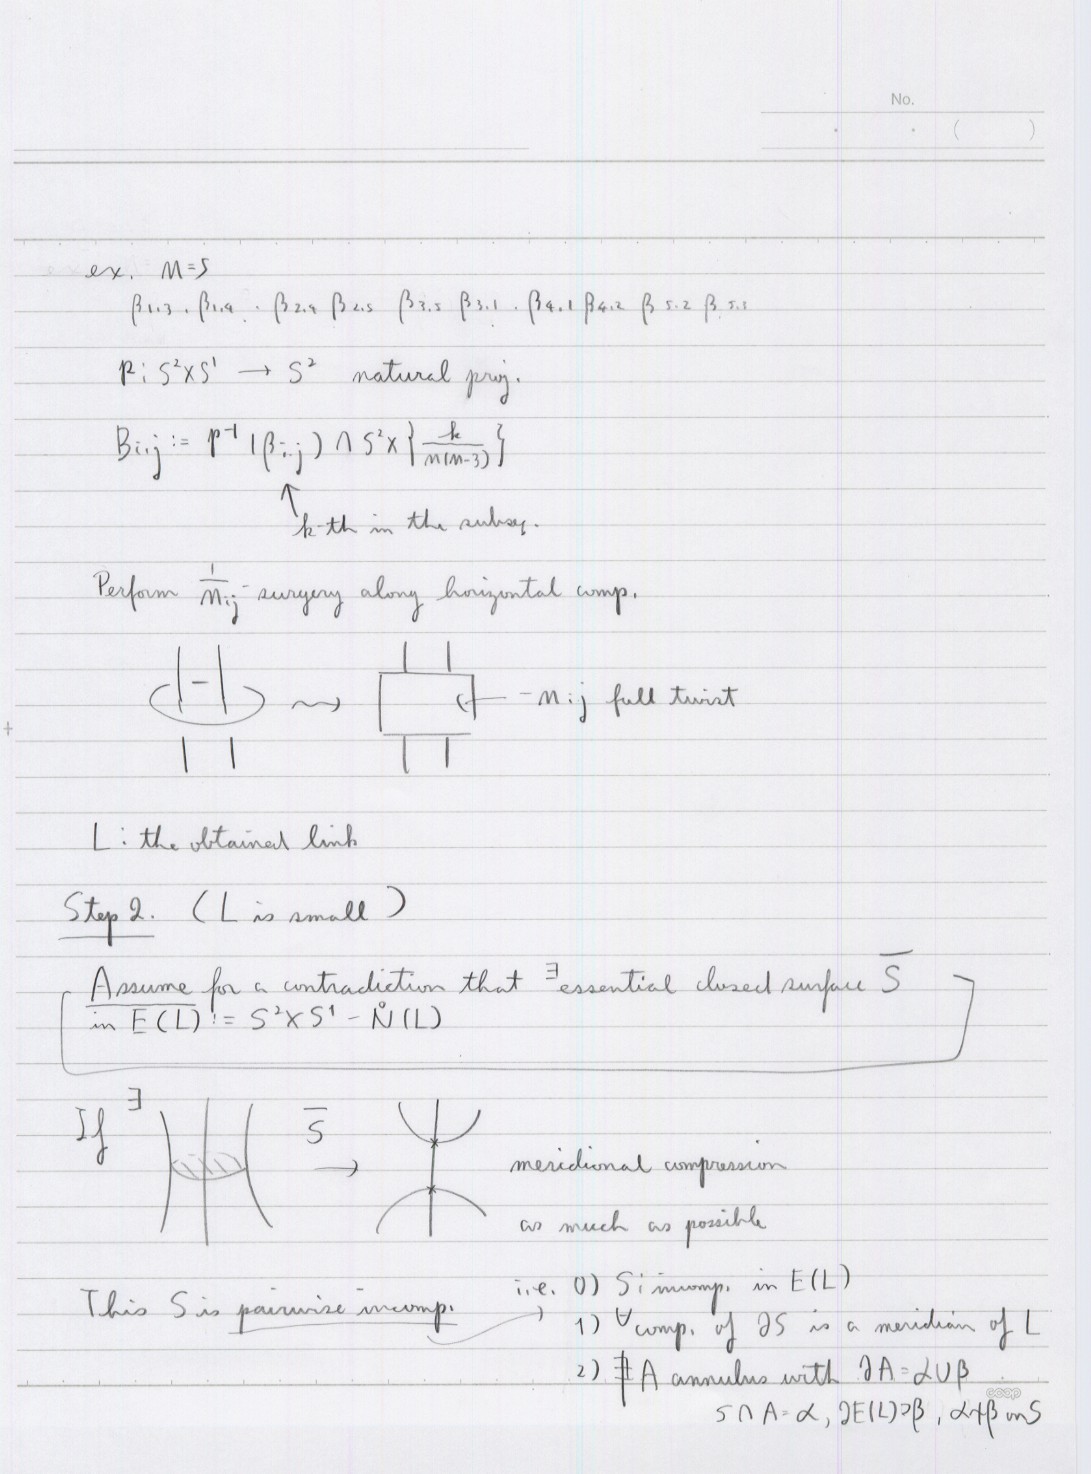 No.
( )
ex. n=5
β1,3 , β1,4 , β2,4 β2,5 β3,5 β3,1 , β4,1 β4,2 β5,2 β5,3
p: S²×S¹ → S² natural proj.
Bi,j := p⁻¹(βi,j) ∩ S²×{k/n(n-3)}
↑
k-th in the subseq.
Perform 1/nij - surgery along horizontal comp.
-nij full twist
L : the obtained link
Step 2. (L is small)
Assume for a contradiction that ∃essential closed surface S̅
in E(L) := S²×S¹ - N̊(L)
If ∃ S̅ →
meridional compression
as much as possible
This S is pairwise incomp. i.e. 0) S: incomp. in E(L)
1) ∀comp. of ∂S is a meridian of L
2) ∄A annulus with ∂A = α∪β
coop
S∩A=α, ∂E(L)⊃β, α≁β on S